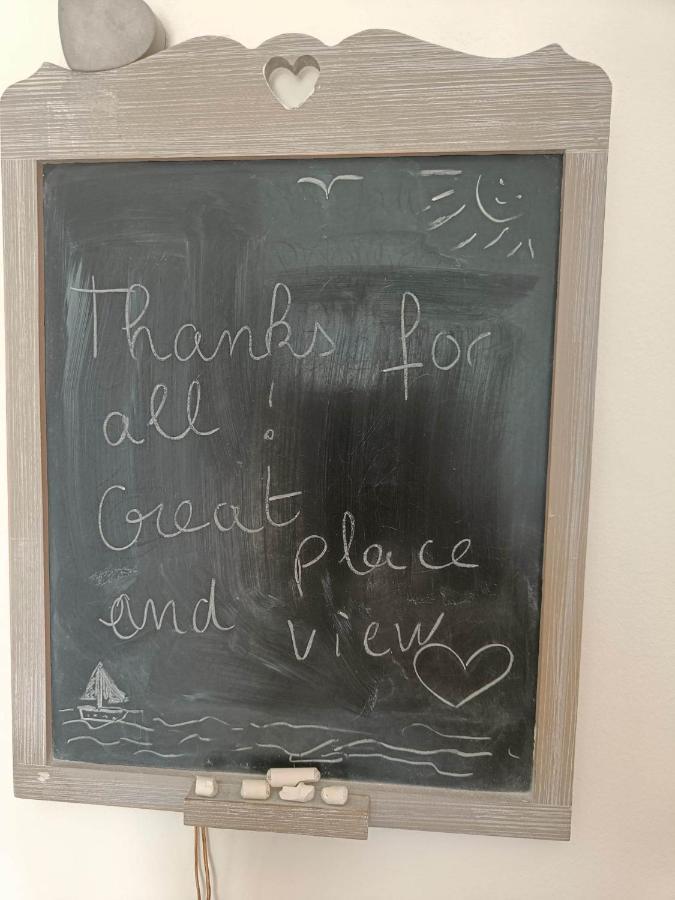 Thanks for
all !
Great place
and view